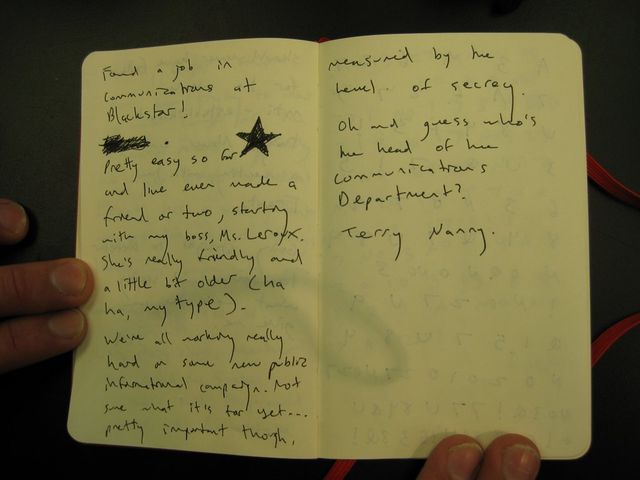 Found a job in
communications at
Blackstar!
Pretty easy so far
and I've even made a
friend or two, starting
with my boss, Ms. Leroyx.
She's really friendly and
a little bit older (ha
ha, my type).
We're all working really
hard on some new public
informational campaign. Not
sure what it is for yet...
pretty important though,
measured by the
level of secrecy.
Oh and guess who's
the head of the
communications
Department?
Terry Nanny.